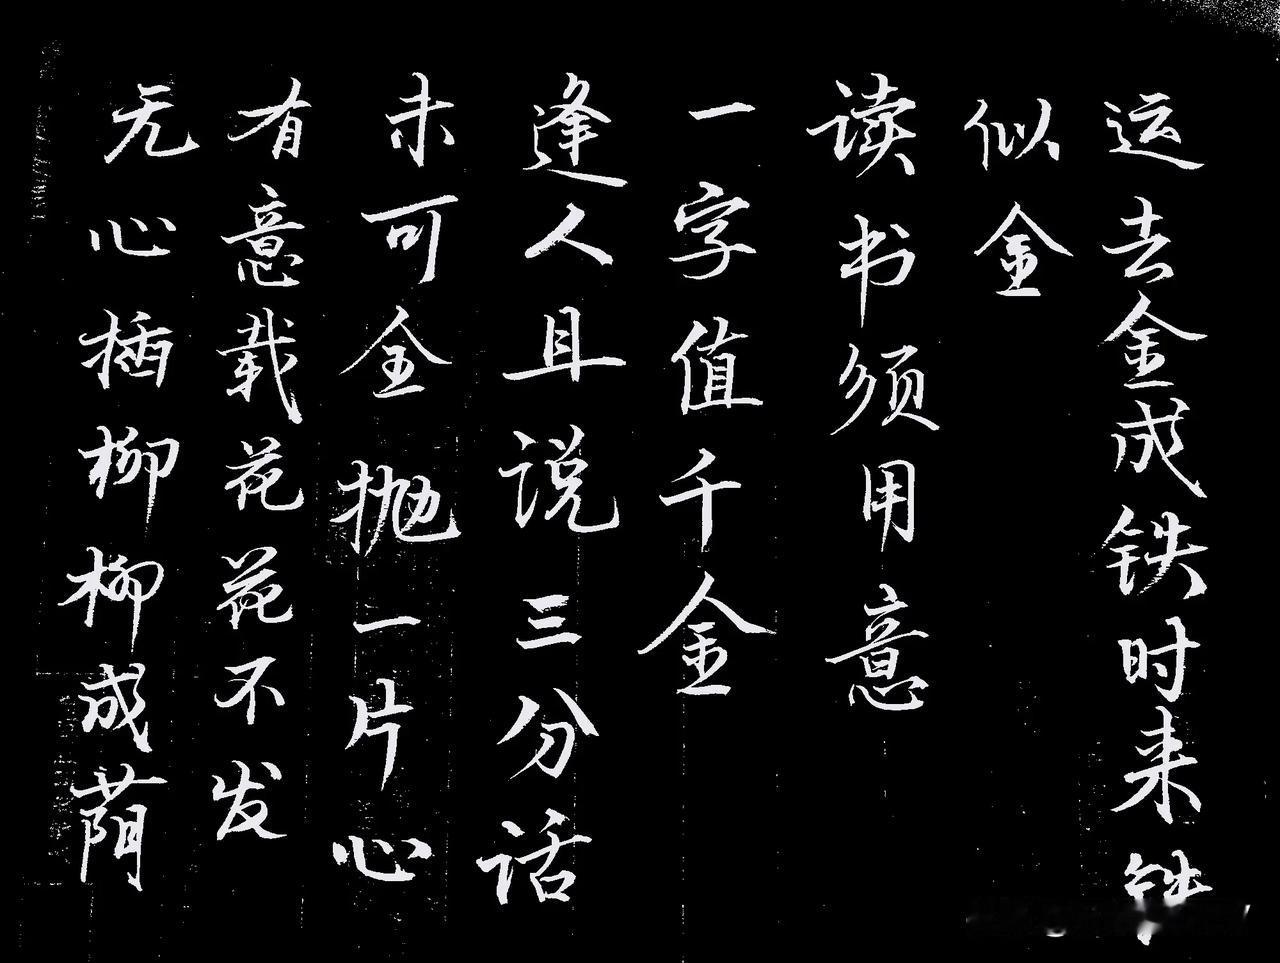 运去金成铁时来铁
似金
读书须用意
一字值千金
逢人且说三分话
未可全抛一片心
有意载花花不发
无心插柳柳成荫